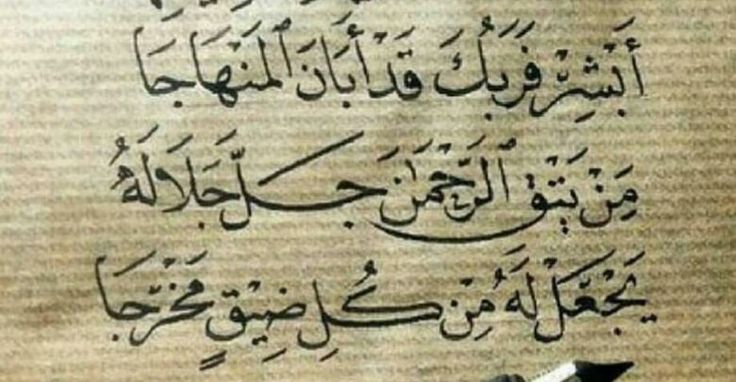 أَبْشِرْ فَرَبُّكَ قَدْ أَبَانَ ٱلْمَنْهَاجَا
مَنْ يَتَّقِ ٱلرَّحْمٰنَ جَلَّ جَلَالَهُ
يَجْعَلْ لَهُ مِنْ كُلِّ ضِيقٍ مَخْرَجَا